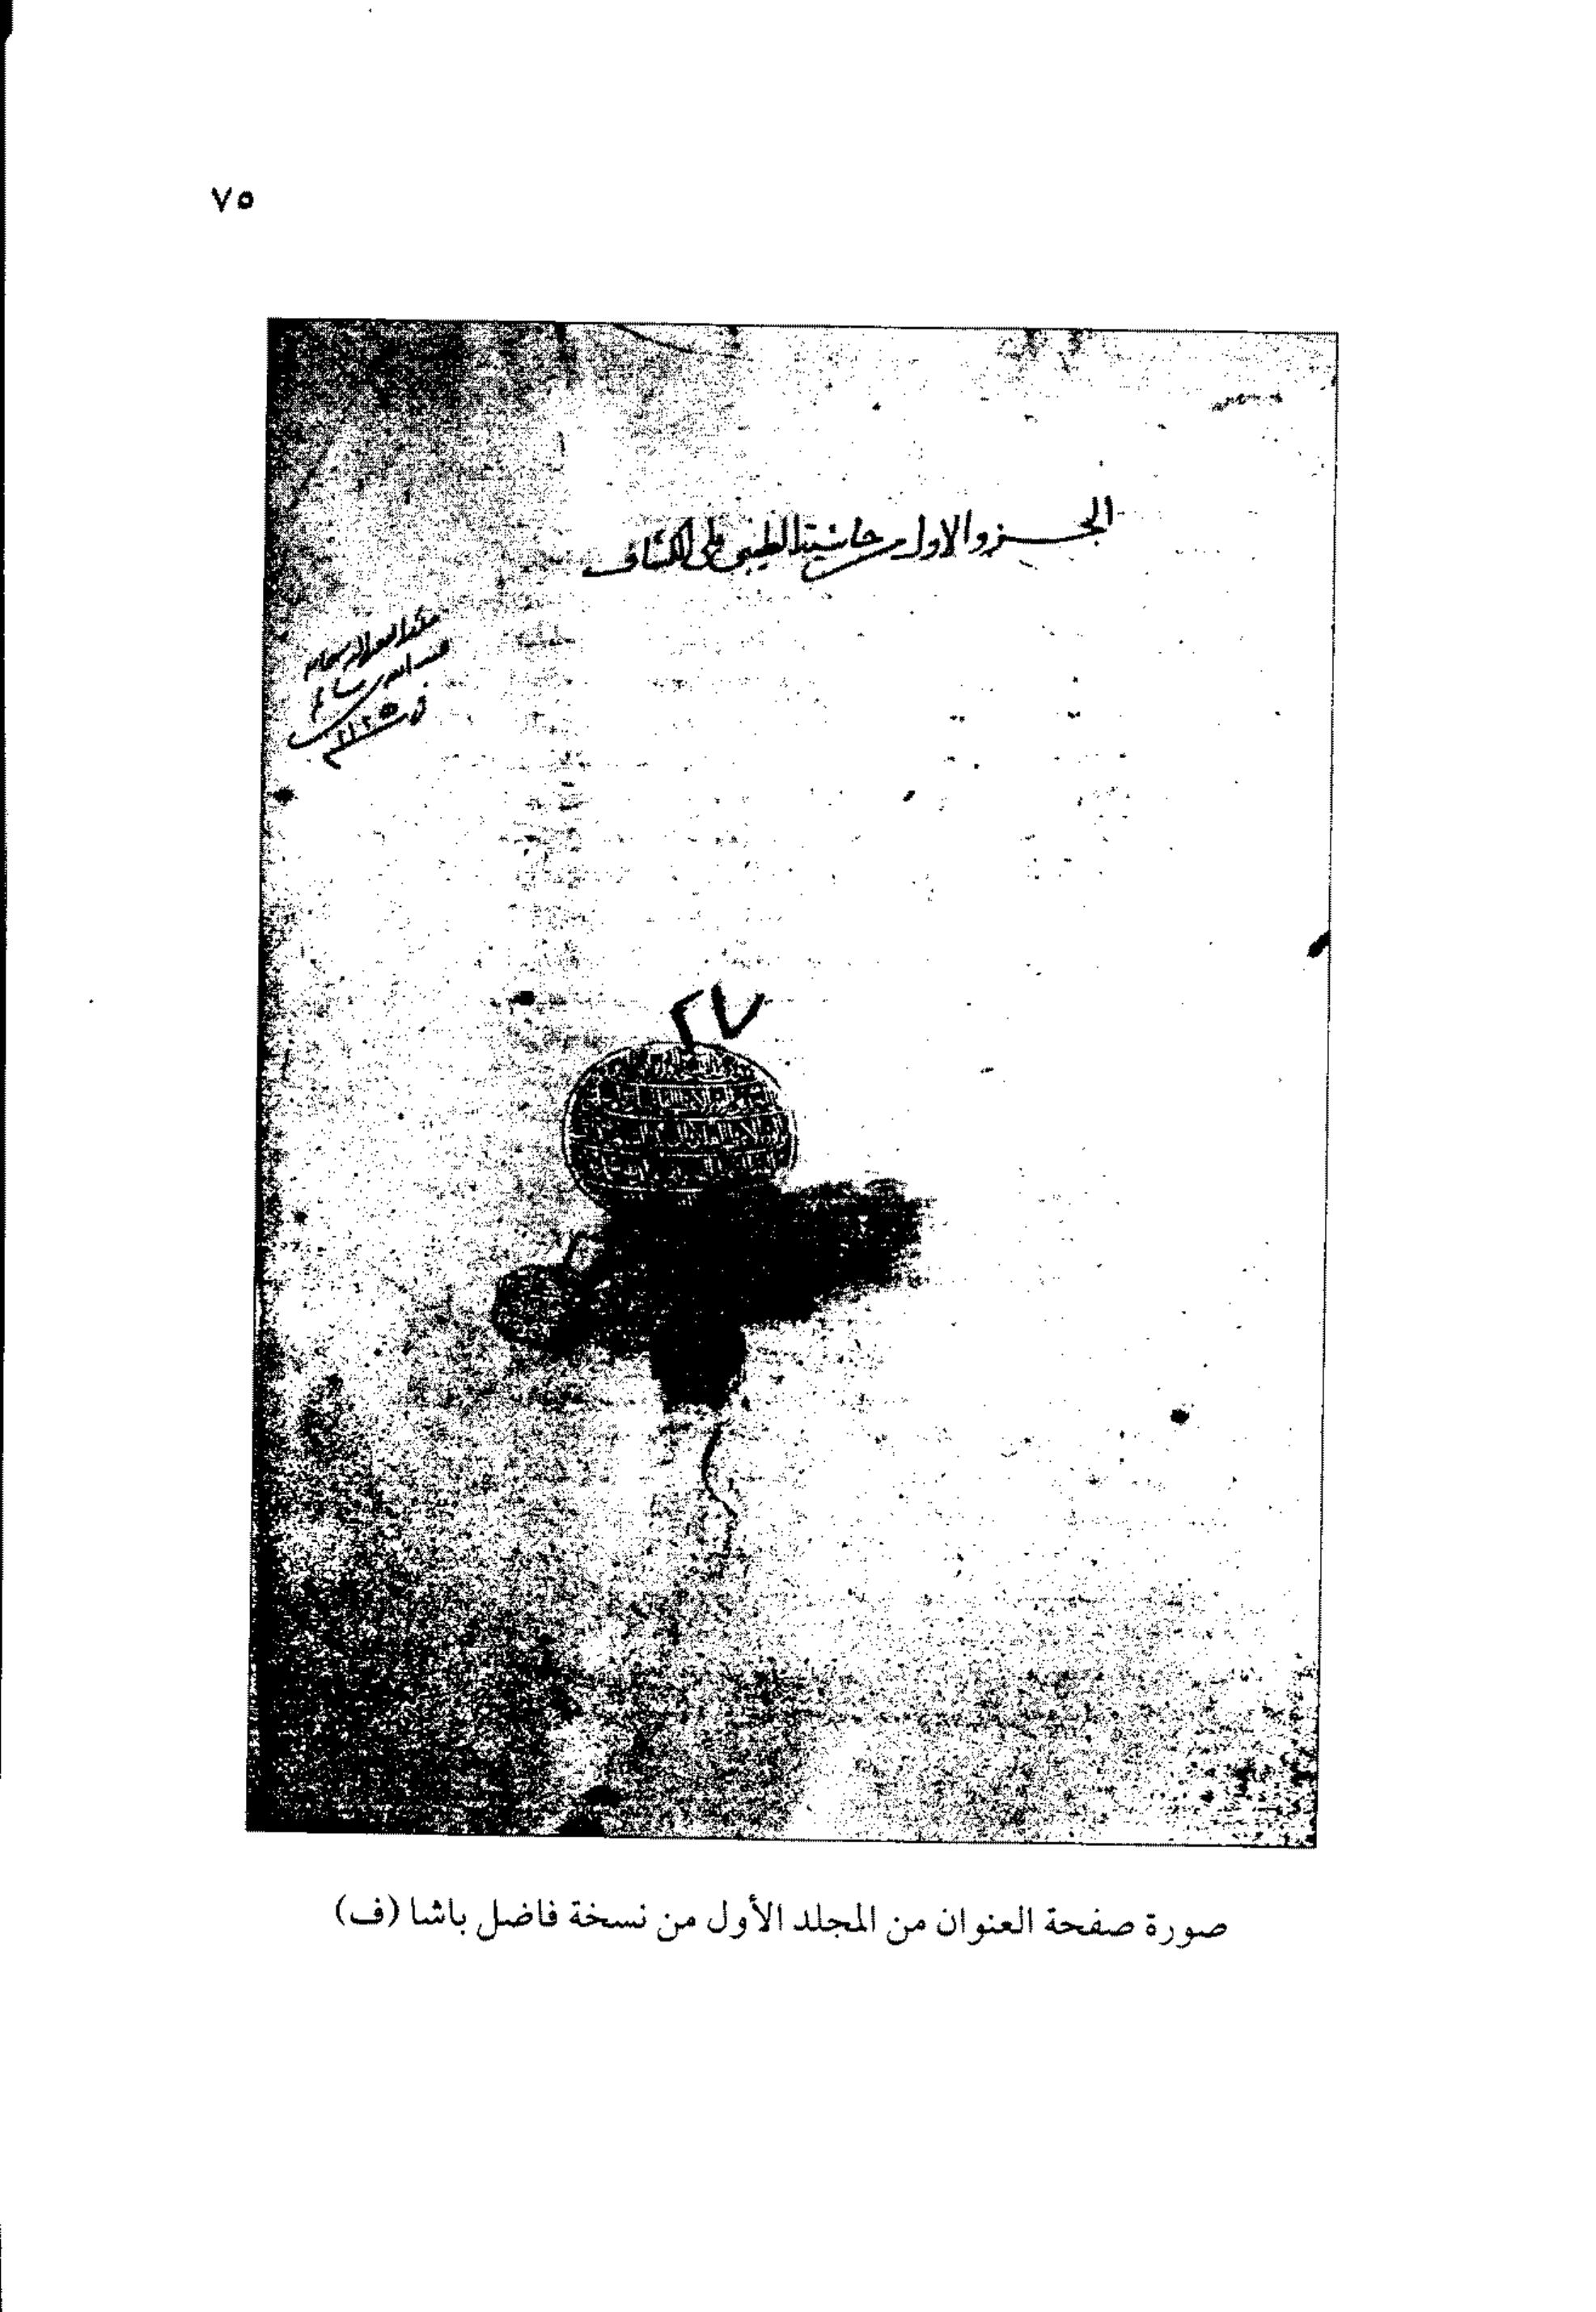 ٧٥
الجزو الاول من حاشية الطيبي على الكشاف
في سنة ١١٢٥
٢٧
صورة صفحة العنوان من المجلد الأول من نسخة فاضل باشا (ف)